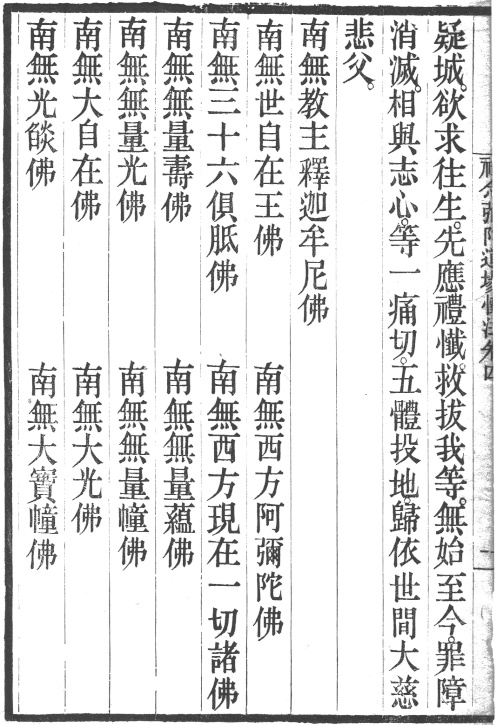 疑城。欲求往生。先應禮懺。救拔我等。無始至今。罪障
消滅。相與志心。等一痛切。五體投地。歸依世間大慈
悲父。
南無教主釋迦牟尼佛
南無世自在王佛　南無西方阿彌陀佛
南無三十六俱胝佛　南無西方現在一切諸佛
南無無量壽佛　南無無量蘊佛
南無無量光佛　南無無量幢佛
南無大自在佛　南無大光佛
南無光燄佛　南無大寶幢佛